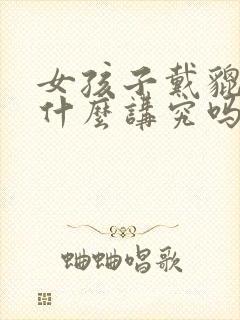 女孩子戴貔
什麼講究吗
蛐蛐唱歌